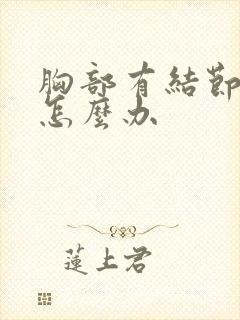 胸部有結節
怎麼办
蓮上君